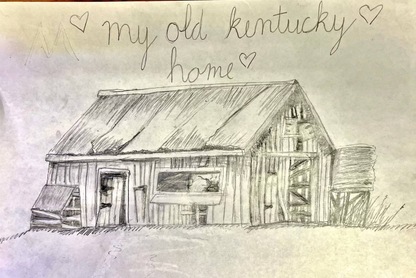 my old kentucky
home